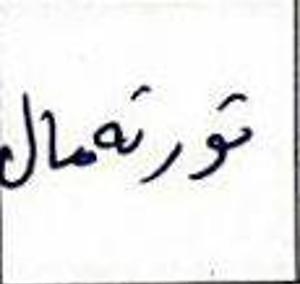 تورتەمال